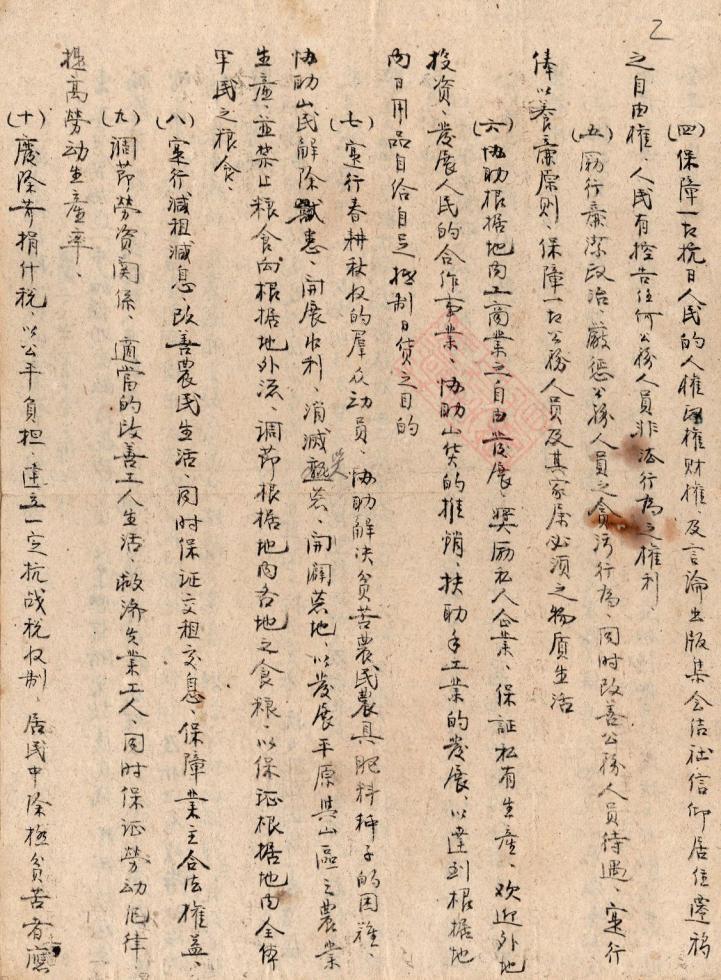 2
(四)保障一切抗日人民的人权政权财权、及言論出版集会结社信仰居住遷移
之自由權、人民有控告任何公務人員非法行為之權利
(五)厲行廉潔政治、嚴惩公務人員之贪污行為、同时改善公務人員待遇、实行
俸以养廉原则、保障一切公務人員及其家属必须之物质生活
(六)协助根据地内工商業之自由發展、奨励私人企業、保証私有生產、欢迎外地
投资、發展人民的合作事業、协助山货的推销、扶助手工業的發展、以達到根据地
内日用品自给自足抵制日货之目的
(七)实行春耕秋收的羣众动员、协助解决贫苦農民農具肥料种子的困难、
协助山民解除獸患、開展水利、消滅荒、開闢荒地、以發展平原與山區之農業
生產、並禁止粮食向根据地外流、调节根据地内各地之食粮以保证根据地内全体
军民之粮食、
(八)实行減租減息、改善農民生活、同时保证交租交息、保障業主合法權益、
(九)调節勞资関係、適當的改善工人生活、救济失業工人、同时保证勞动纪律、
提高勞动生產率、
(十)廢除苛捐什税、以公平負担、建立一定抗战税收制、居民中除極貧苦者應